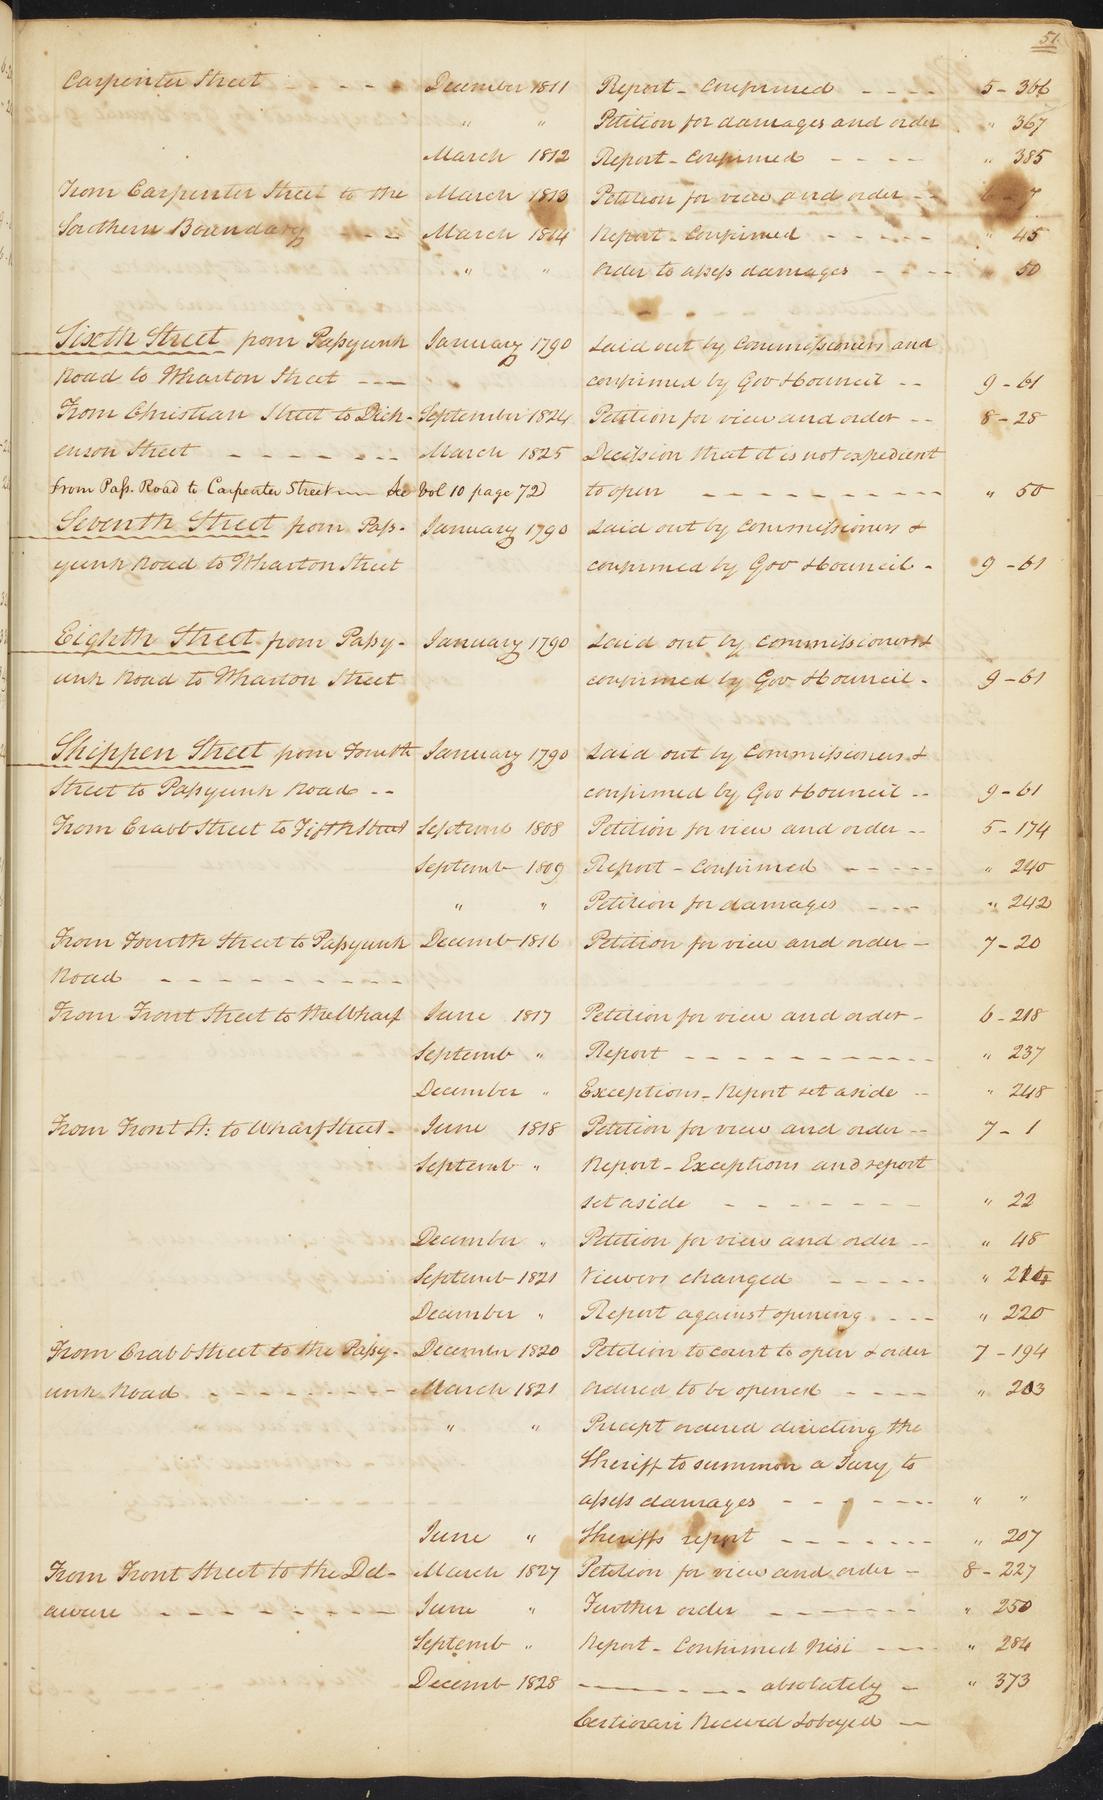 51.
Carpenter Street - - - - December 1811 Report - Confirmed - - - - 5 - 366
" " Petition for damages and order " 367
March 1812 Report - Confirmed - - - - " 385
From Carpenter Street to the March 1813 Petition for view and order - - 6 - 7
Southern Boundary - - - March 1814 Report - Confirmed - - - - - " 45
" " Order to assess damages - - - - " 50
Sixth Street from Passyunk January 1790 Laid out by Commissioners and
Road to Wharton Street - - - confirmed by Gov & Council - - 9 - 61
From Christian Street to Dick- September 1824 Petition for view and order - - 8 - 28
enson Street - - - - - - - March 1825 Decision that it is not expedient
From Pass. Road to Carpenter Street - - - See Vol 10 page 72) to open - - - - - - - - - - " 50
Seventh Street from Pass- January 1790 Laid out by Commissioners &
yunk Road to Wharton Street confirmed by Gov & Council - 9 - 61
Eighth Street from Passy- January 1790 Laid out by Commissioners &
unk Road to Wharton Street confirmed by Gov & Council - 9 - 61
Shippen Street from Fourth January 1790 Laid out by Commissioners &
Street to Passyunk Road - - confirmed by Gov & Council - - 9 - 61
From Crabb Street to Fifth Street Septemb 1808 Petition for view and order - - 5 - 174
Septemb 1809 Report - Confirmed - - - - - " 240
" " Petition for damages - - - " 242
From Fourth Street to Passyunk Decemb 1816 Petition for view and order - 7 - 20
Road - - - - - - - - - -
From Front Street to the Wharf June 1817 Petition for view and order - 6 - 218
Septemb " Report - - - - - - - - - - - " 237
December " Exceptions - Report set aside - - " 248
From Front St: to Wharf Street - June 1818 Petition for view and order - - 7 - 1
Septemb " Report - Exceptions and report
set aside - - - - - - - - " 22
December " Petition for view and order - - " 48
Septemb 1821 Viewers changed - - - - - " 214
December " Report against opening - - - - " 220
From Crabb Street to the Passy- Decembr 1820 Petition to court to open & order 7 - 194
unk Road - - - - - - - - March 1821 Ordered to be opened - - - - " 203
" " Precept ordered directing the
Sheriff to summon a Jury to
assess damages - - - - - - - " "
June " Sheriffs report - - - - - - - " 207
From Front Street to the Del- March 1827 Petition for view and order - 8 - 227
aware - - - - - - - - - June " Further order - - - - - - - " 250
Septemb " Report - Confirmed Nisi - - - " 284
Decemb 1828 - - - - - - - - absolutely - " 373
Certiorari Received & obeyed -